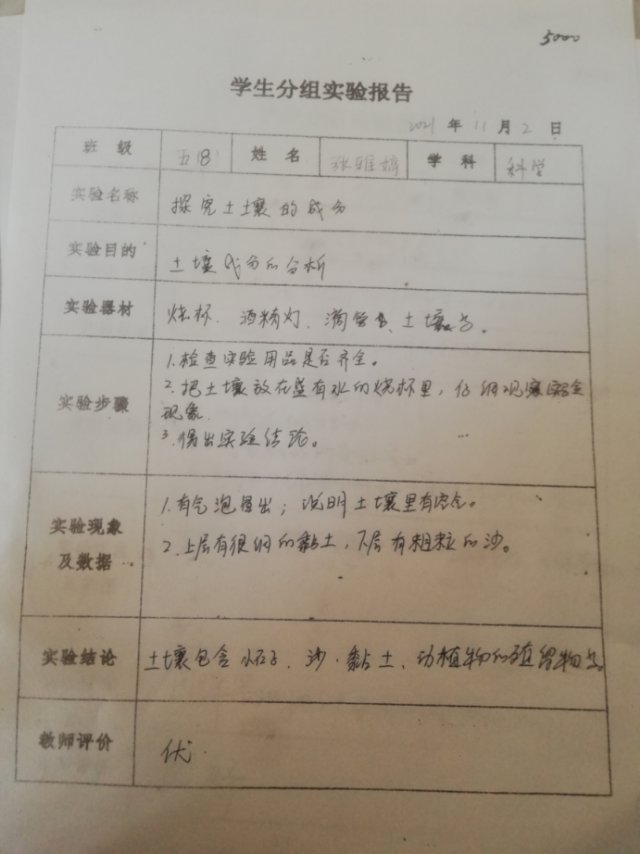 5000
学生分组实验报告
2021 年 11 月 2 日
班 级 五(8) 姓 名 张雅婷 学 科 科学
实验名称 探究土壤的成分
实验目的 土壤成分的分析
实验器材 烧杯、酒精灯、滴管、土壤等。
1.检查实验用品是否齐全。
实验步骤 2.把土壤放在盛有水的烧杯里，仔细观察实验
现象.
3.得出实验结论。
实验现象 1.有气泡冒出；说明土壤里有空气。
及数据 2.上层有很细的黏土，下层有粗粒的沙。
实验结论 土壤包含小石子、沙、黏土、动植物的残留物等。
教师评价 优.